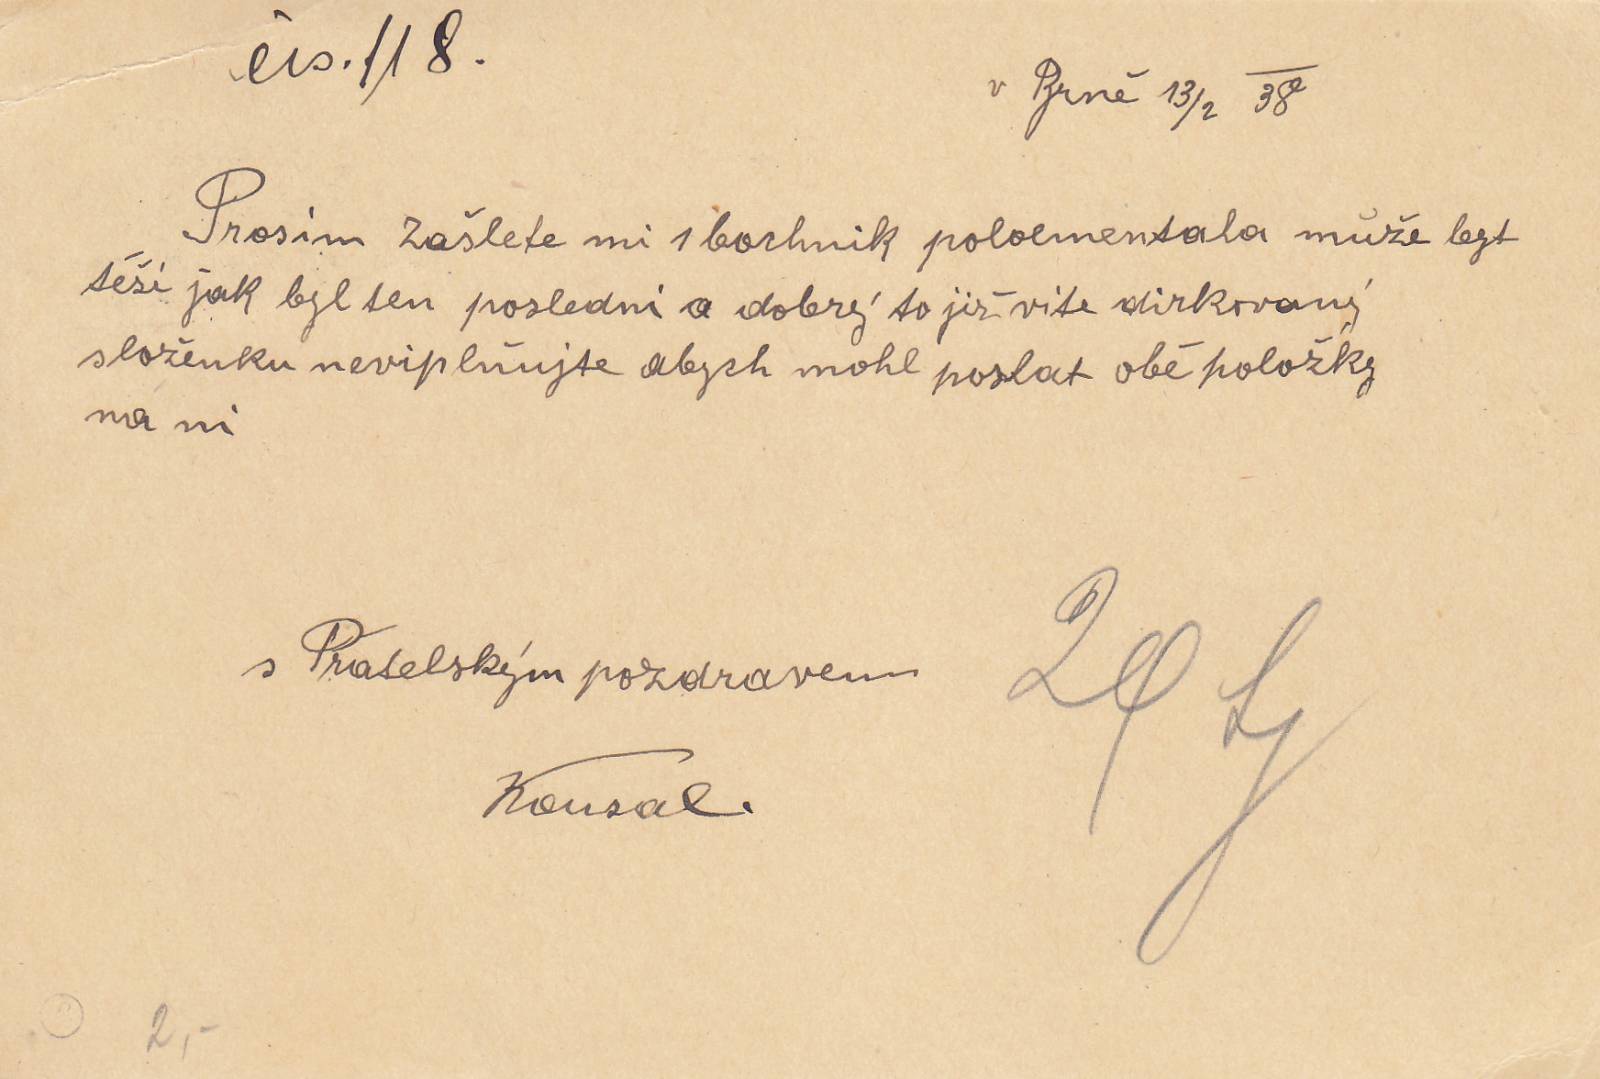 čis. 118.
v Brně 13/2 38
Prosim zašlete mi 1 bochnik poloementala může byt
těší jak byl ten posledni a dobrý to již vite dirkovaný
složenku neviplňujte abych mohl poslat obě položky
na ni
s Přatelským pozdravem
Kousal.
2,-